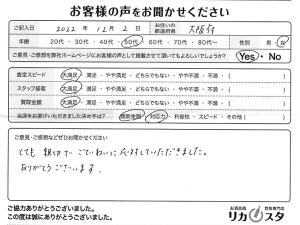 お客様の声をお聞かせください
ご記入日 2022年12月2日 お住いの都道府県 大阪府
年齢 20代・30代・40代・50代・60代・70代・80代〜 性別 男・女
ご意見・ご感想を弊社ホームページにお客様の声として掲載させて頂いてもよろしいでしょうか? Yes・No
査定スピード 大満足・満足・やや満足・どちらでもない・やや不満・不満・( )
スタッフ接客 大満足・満足・やや満足・どちらでもない・やや不満・不満・( )
買取金額 大満足・満足・やや満足・どちらでもない・やや不満・不満・( )
当店をお選びいただきました決め手は? 買取金額・対応力・利便性・スピード・その他( )
ご意見、ご感想などぜひお聞かせください
とても親切でていねいに応対していただきました。
ありがとうございます。
ご協力ありがとうございました。
この度は誠にありがとうございました。
お酒高価 買取専門店
リカスタ